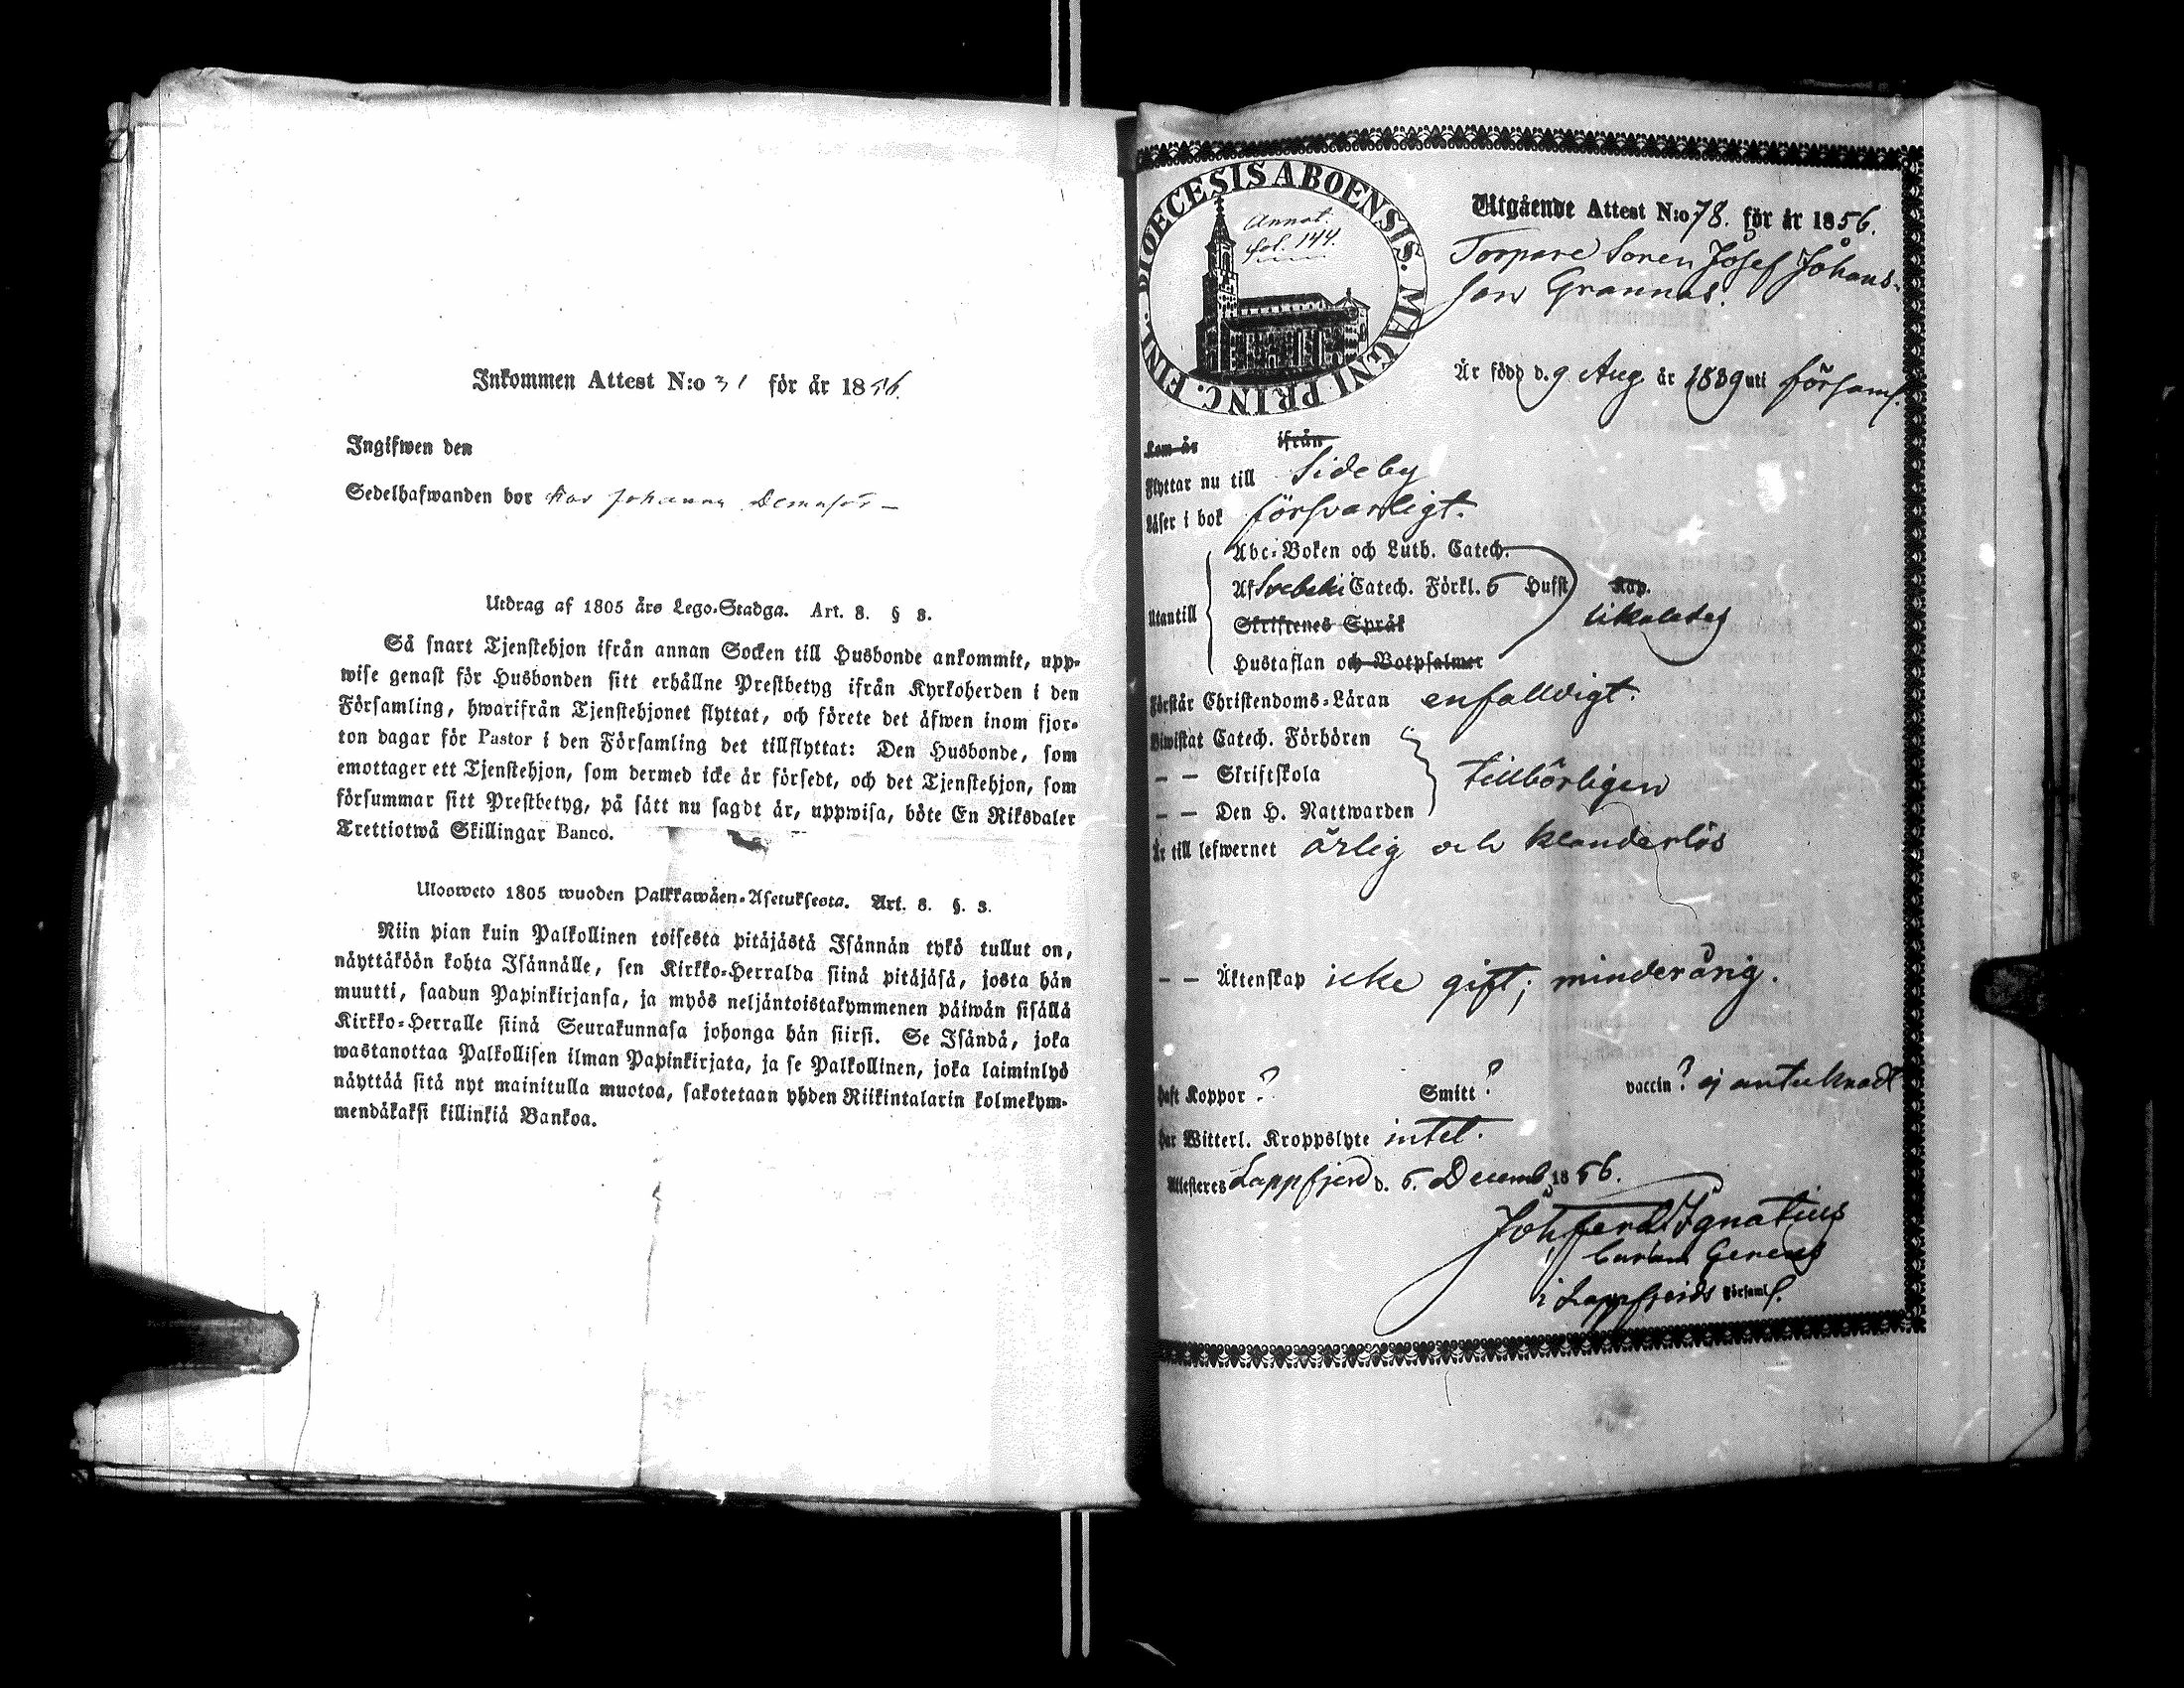 Inkommen Attest N:o 31 för år 1856.
Ingifwen den
Sedelhafwanden bor hos Johanna
Utdrag af 1805 års Lego-Stadga. Art. 8. § 3.
Så snart Tjenstehjon ifrån annan Socken till Husbonde ankommit, upp-
wise genast för Husbonden sitt erhållne Prestbetyg ifrån Kyrkoherden i den
Församling, hwarifrån Tjenstehjonet flyttat, och förete det äfwen inom fjor-
ton dagar för Pastor i den Församling det tillflyttat: Den Husbonde, som
emottager ett Tjenstehjon, som dermed icke är försedt, och det Tjenstehjon, som
försummar sitt Prestbetyg, på sätt nu sagdt är, uppwisa, böte En Riksdaler
Trettiotwå Skillingar Banco.
Ulosweto 1805 wuoden Palkkawäen-Asetuksesta. Art. 8. §. 3.
Niin pian kuin Palkollinen toisesta pitäjästä Isännän tykö tullut on,
näyttäköön kohta Isännälle, sen Kirkko-Herralda siinä pitäjäsä, josta hän
muutti, saadun Papinkirjansa, ja myös neljäntoistakymmenen päiwän sisällä
Kirkko-Herralle siinä Seurakunnasa johonga hän siirsi. Se Isändä, joka
wastanottaa Palkollisen ilman Papinkirjata, ja se Palkollinen, joka laiminlyö
näyttää sitä nyt mainitulla muotoa, sakotetaan yhden Riikintalarin kolmekym-
mendäkaksi killinkiä Bankoa.
DIOECESIS ABOENSIS. MAGNI PRINC. FINL.
Annot.
fol. 144.
Utgående Attest N:o 78. för år 1856.
Torpare Sonen Josef Johans-
son Grannas.
Är född d. 9 Aug år 1839 uti församl.
Kom år ifrån
Flyttar nu till Sideby
Läser i bok försvarligt.
Abc-Boken och Luth. Catech.
Af Svebelii Catech. Förkl. 5 Hufst Kap.
Utantill
Skriftenes Språk likaledes
Hustaflan och Botpsalmer
Förstår Christendoms-Läran enfalldigt.
Biwistat Catech. Förhören
— — Skriftskola tillbörligen
— — Den H. Nattwarden
Är till lefwernet ärlig och klanderlös
— — Äktenskap icke gift; minderårig.
Haft Koppor ? Smitt ? vaccin ? ej antecknadt
Har Witterl. Kroppslyte intet.
Attesteres Lappfjerd d. 5. Decemb 1856.
Joh. Ferd. Ignatius
Gerens
i Lappfjerds Församl.